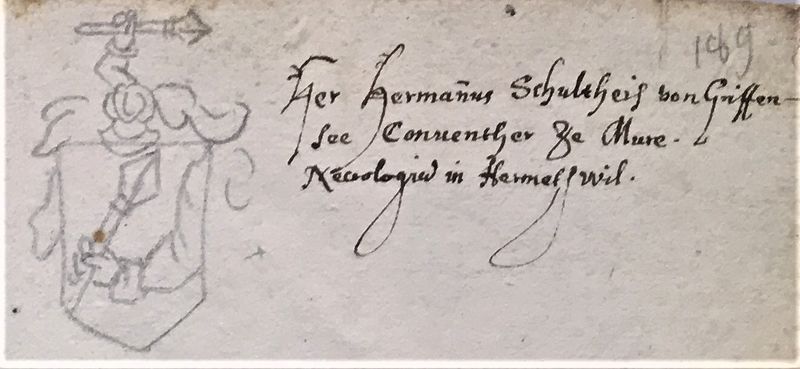 189
Her Hermañus Schultheis von Griffen-
see Conuenther Ze Mure.
Necrologiũ in Hermetschwil.